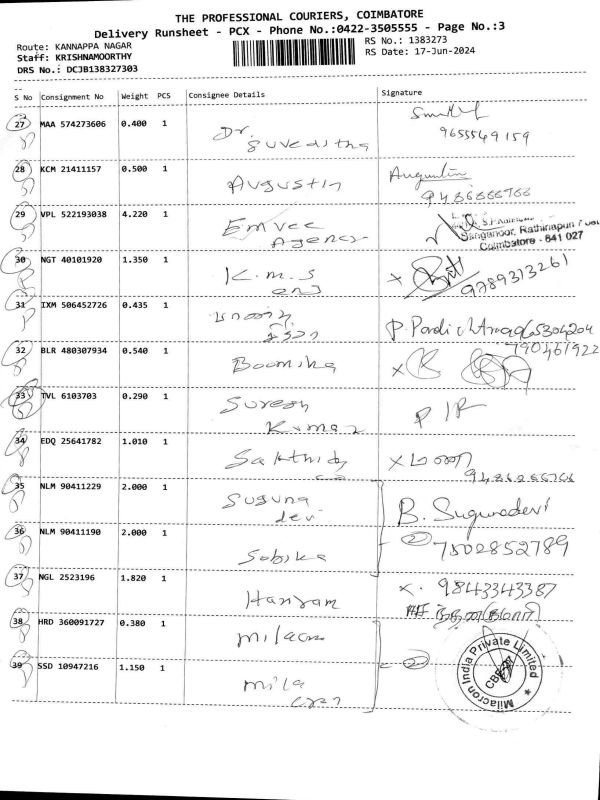 THE PROFESSIONAL COURIERS, COIMBATORE
Delivery Runsheet - PCX - Phone No.:0422-3505555 - Page No.:3
Route: KANNAPPA NAGAR
RS No.: 1383273
Staff: KRISHNAMOORTHY
RS Date: 17-Jun-2024
DRS No.: DCJB138327303
S No Consignment No Weight PCS Consignee Details Signature
27 MAA 574273606 0.400 1 Dr. Suveditha 9655549159
28 KCM 21411157 0.500 1 Augustin Augustin
9486666766
29 VPL 522193038 4.220 1 Emvee
Agency
Sanganoor, Rathinapuri
Coimbatore - 641 027
30 NGT 40101920 1.350 1 K.m.s
9789313261
31 IXM 506452726 0.435 1
32 BLR 480307934 0.540 1 Boomika
33 TVL 6103703 0.290 1 Suresh
Kumar
34 EDQ 25641782 1.010 1
35 NLM 90411229 2.000 1 Suguna
devi
B. Sugunadevi
7502852789
36 NLM 90411190 2.000 1 Sobika
37 NGL 2523196 1.820 1
9843343387
38 HRD 360091727 0.380 1 milacron
39 SSD 10947216 1.150 1 mila
cron
Milacron India Private Limited
CBE-27